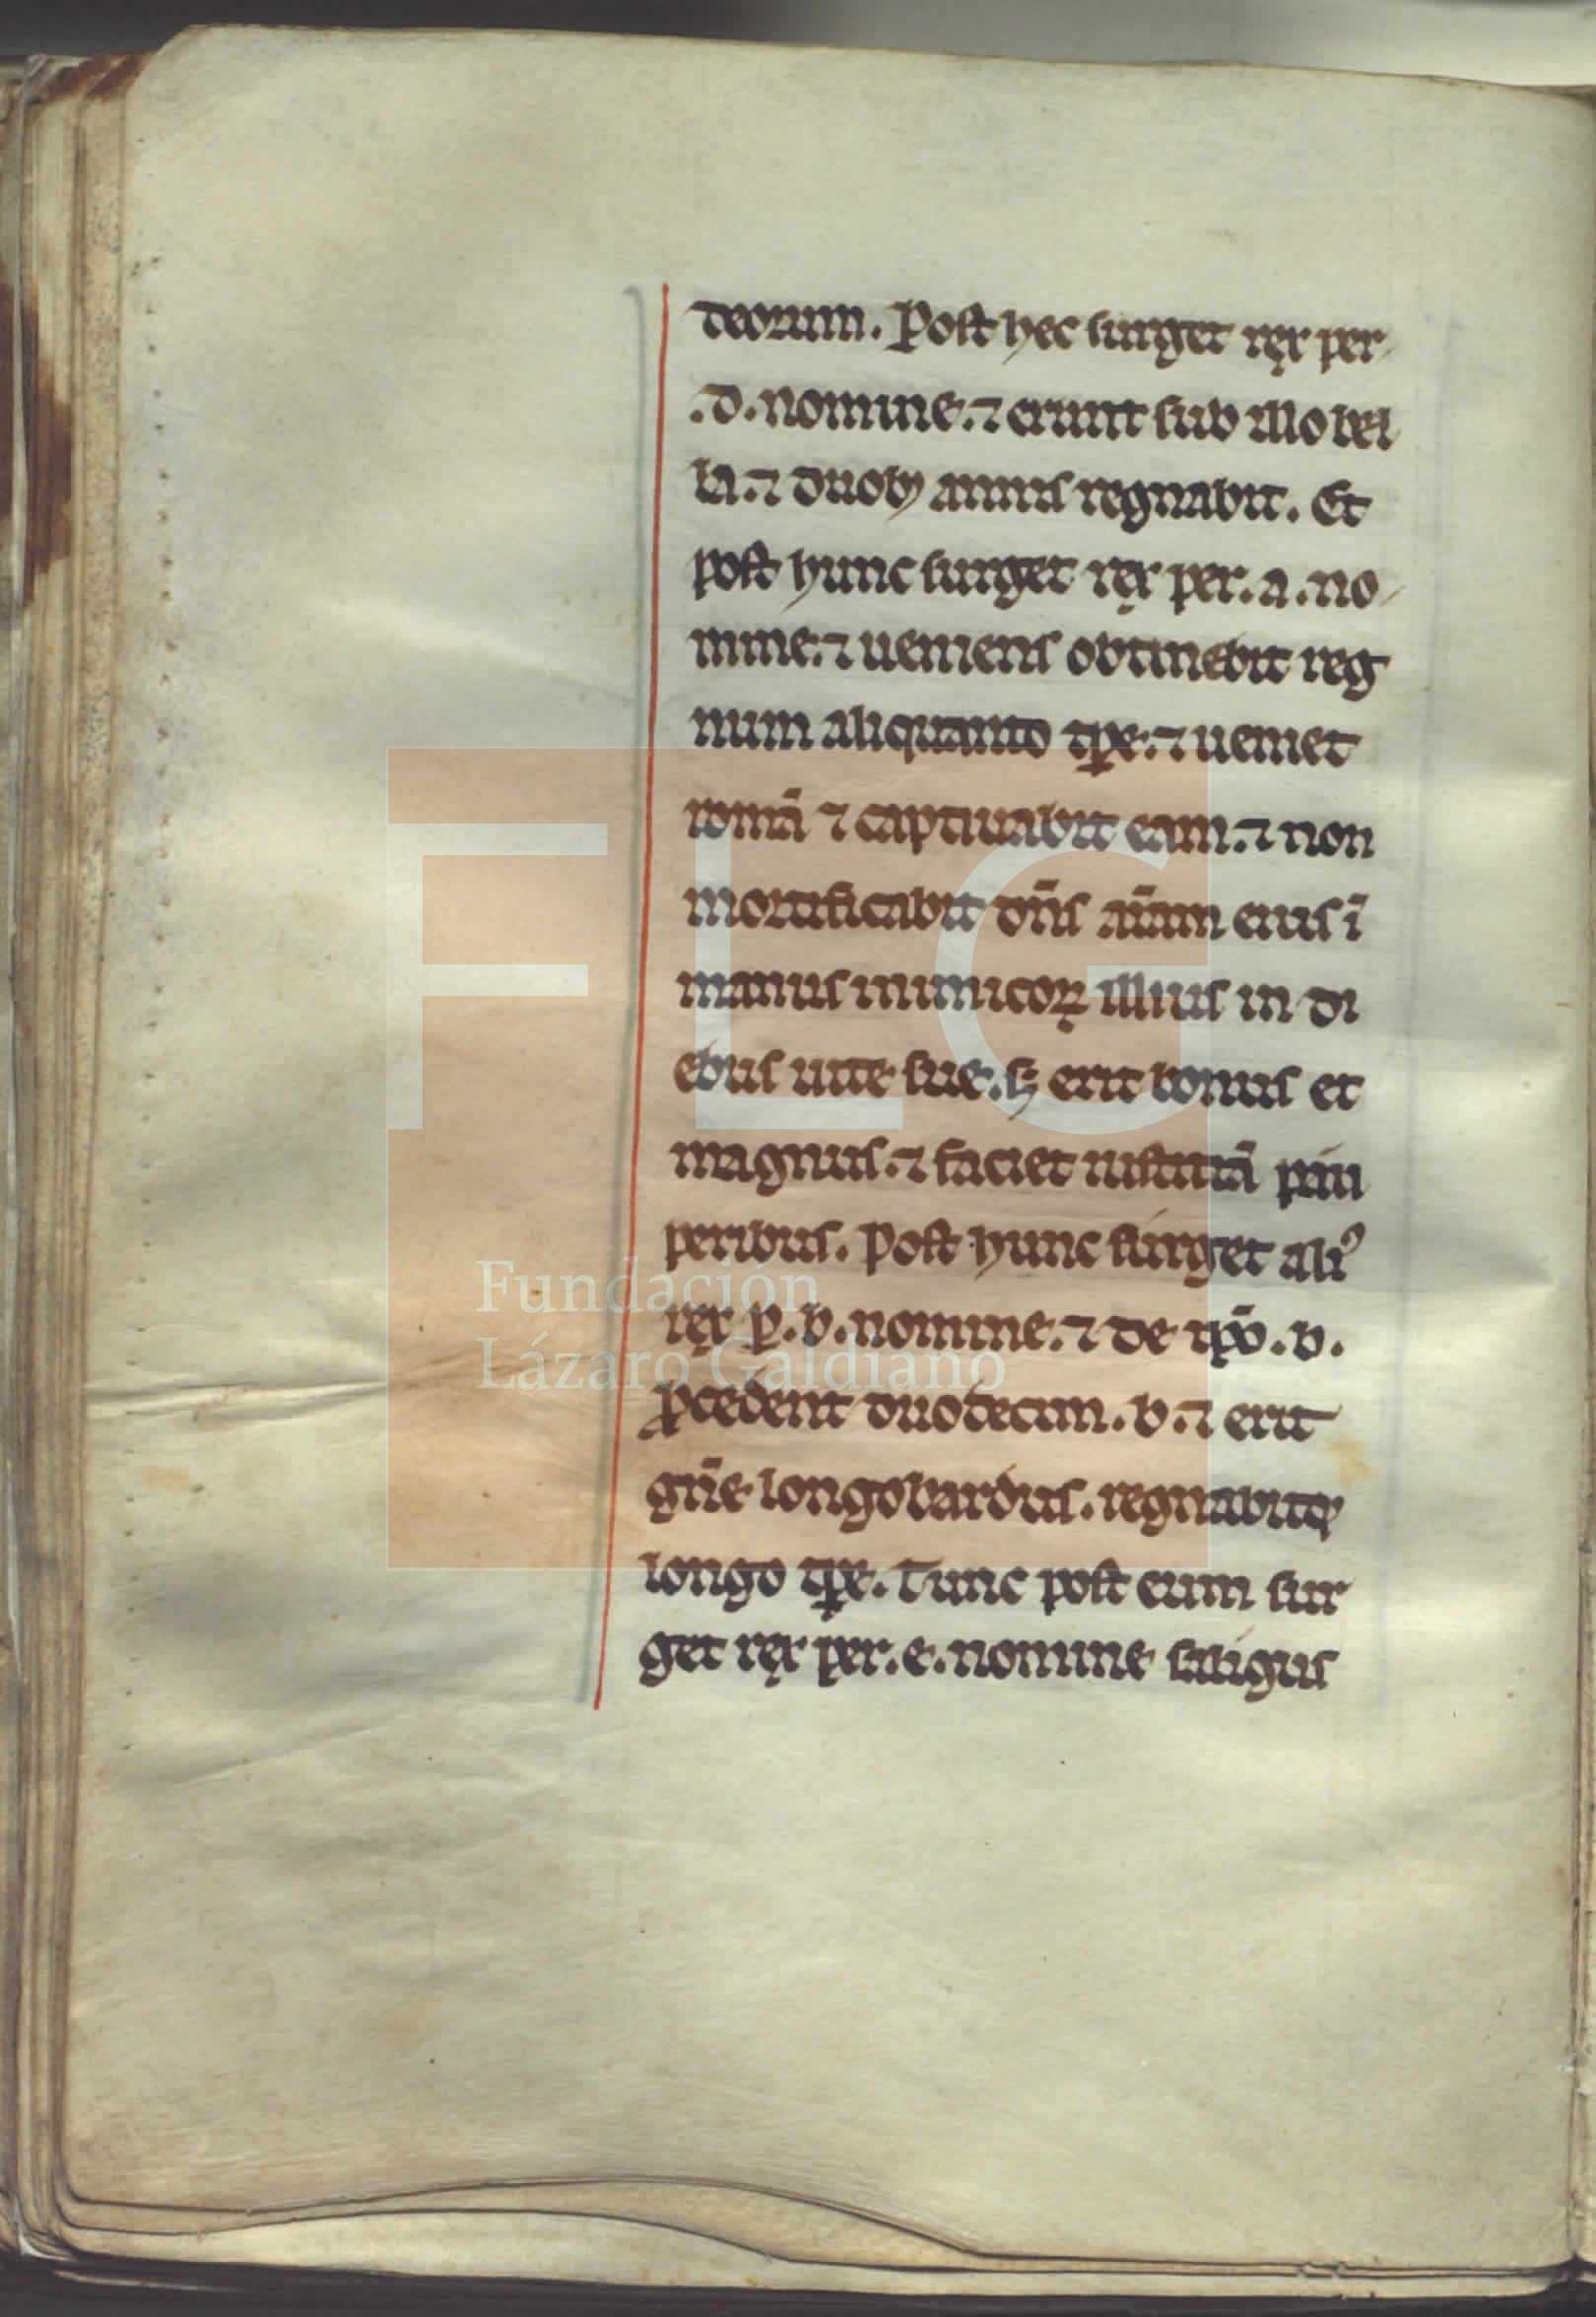 deorum. Post hec surget rex per
.d. nomine. ⁊ erunt sub illo bel
la. ⁊ duobꝫ annis regnabit. Et
post hunc surget rex per. a. no
mine. ⁊ ueniens obtinebit reg
num aliquanto tꝑe. ⁊ ueniet
romā ⁊ captiuabit eam. ⁊ non
mortificabit dn̄s aīam eius ī
manus inimicoꝝ illius in di
ebus uite sue. sꝫ erit bonus et
magnus. ⁊ faciet iusticiā pau
peribus. Post hunc surget aliꝰ
rex ꝑ. b. nomine. ⁊ de ip̄o. b.
ꝓcedent duodecim. b. ⁊ erit
gn̄e longobardus. regnabitqꝫ
longo tꝑe. Tunc post eum sur
get rex per. e. nomine saligus
FLG
Fundación
Lázaro Galdiano